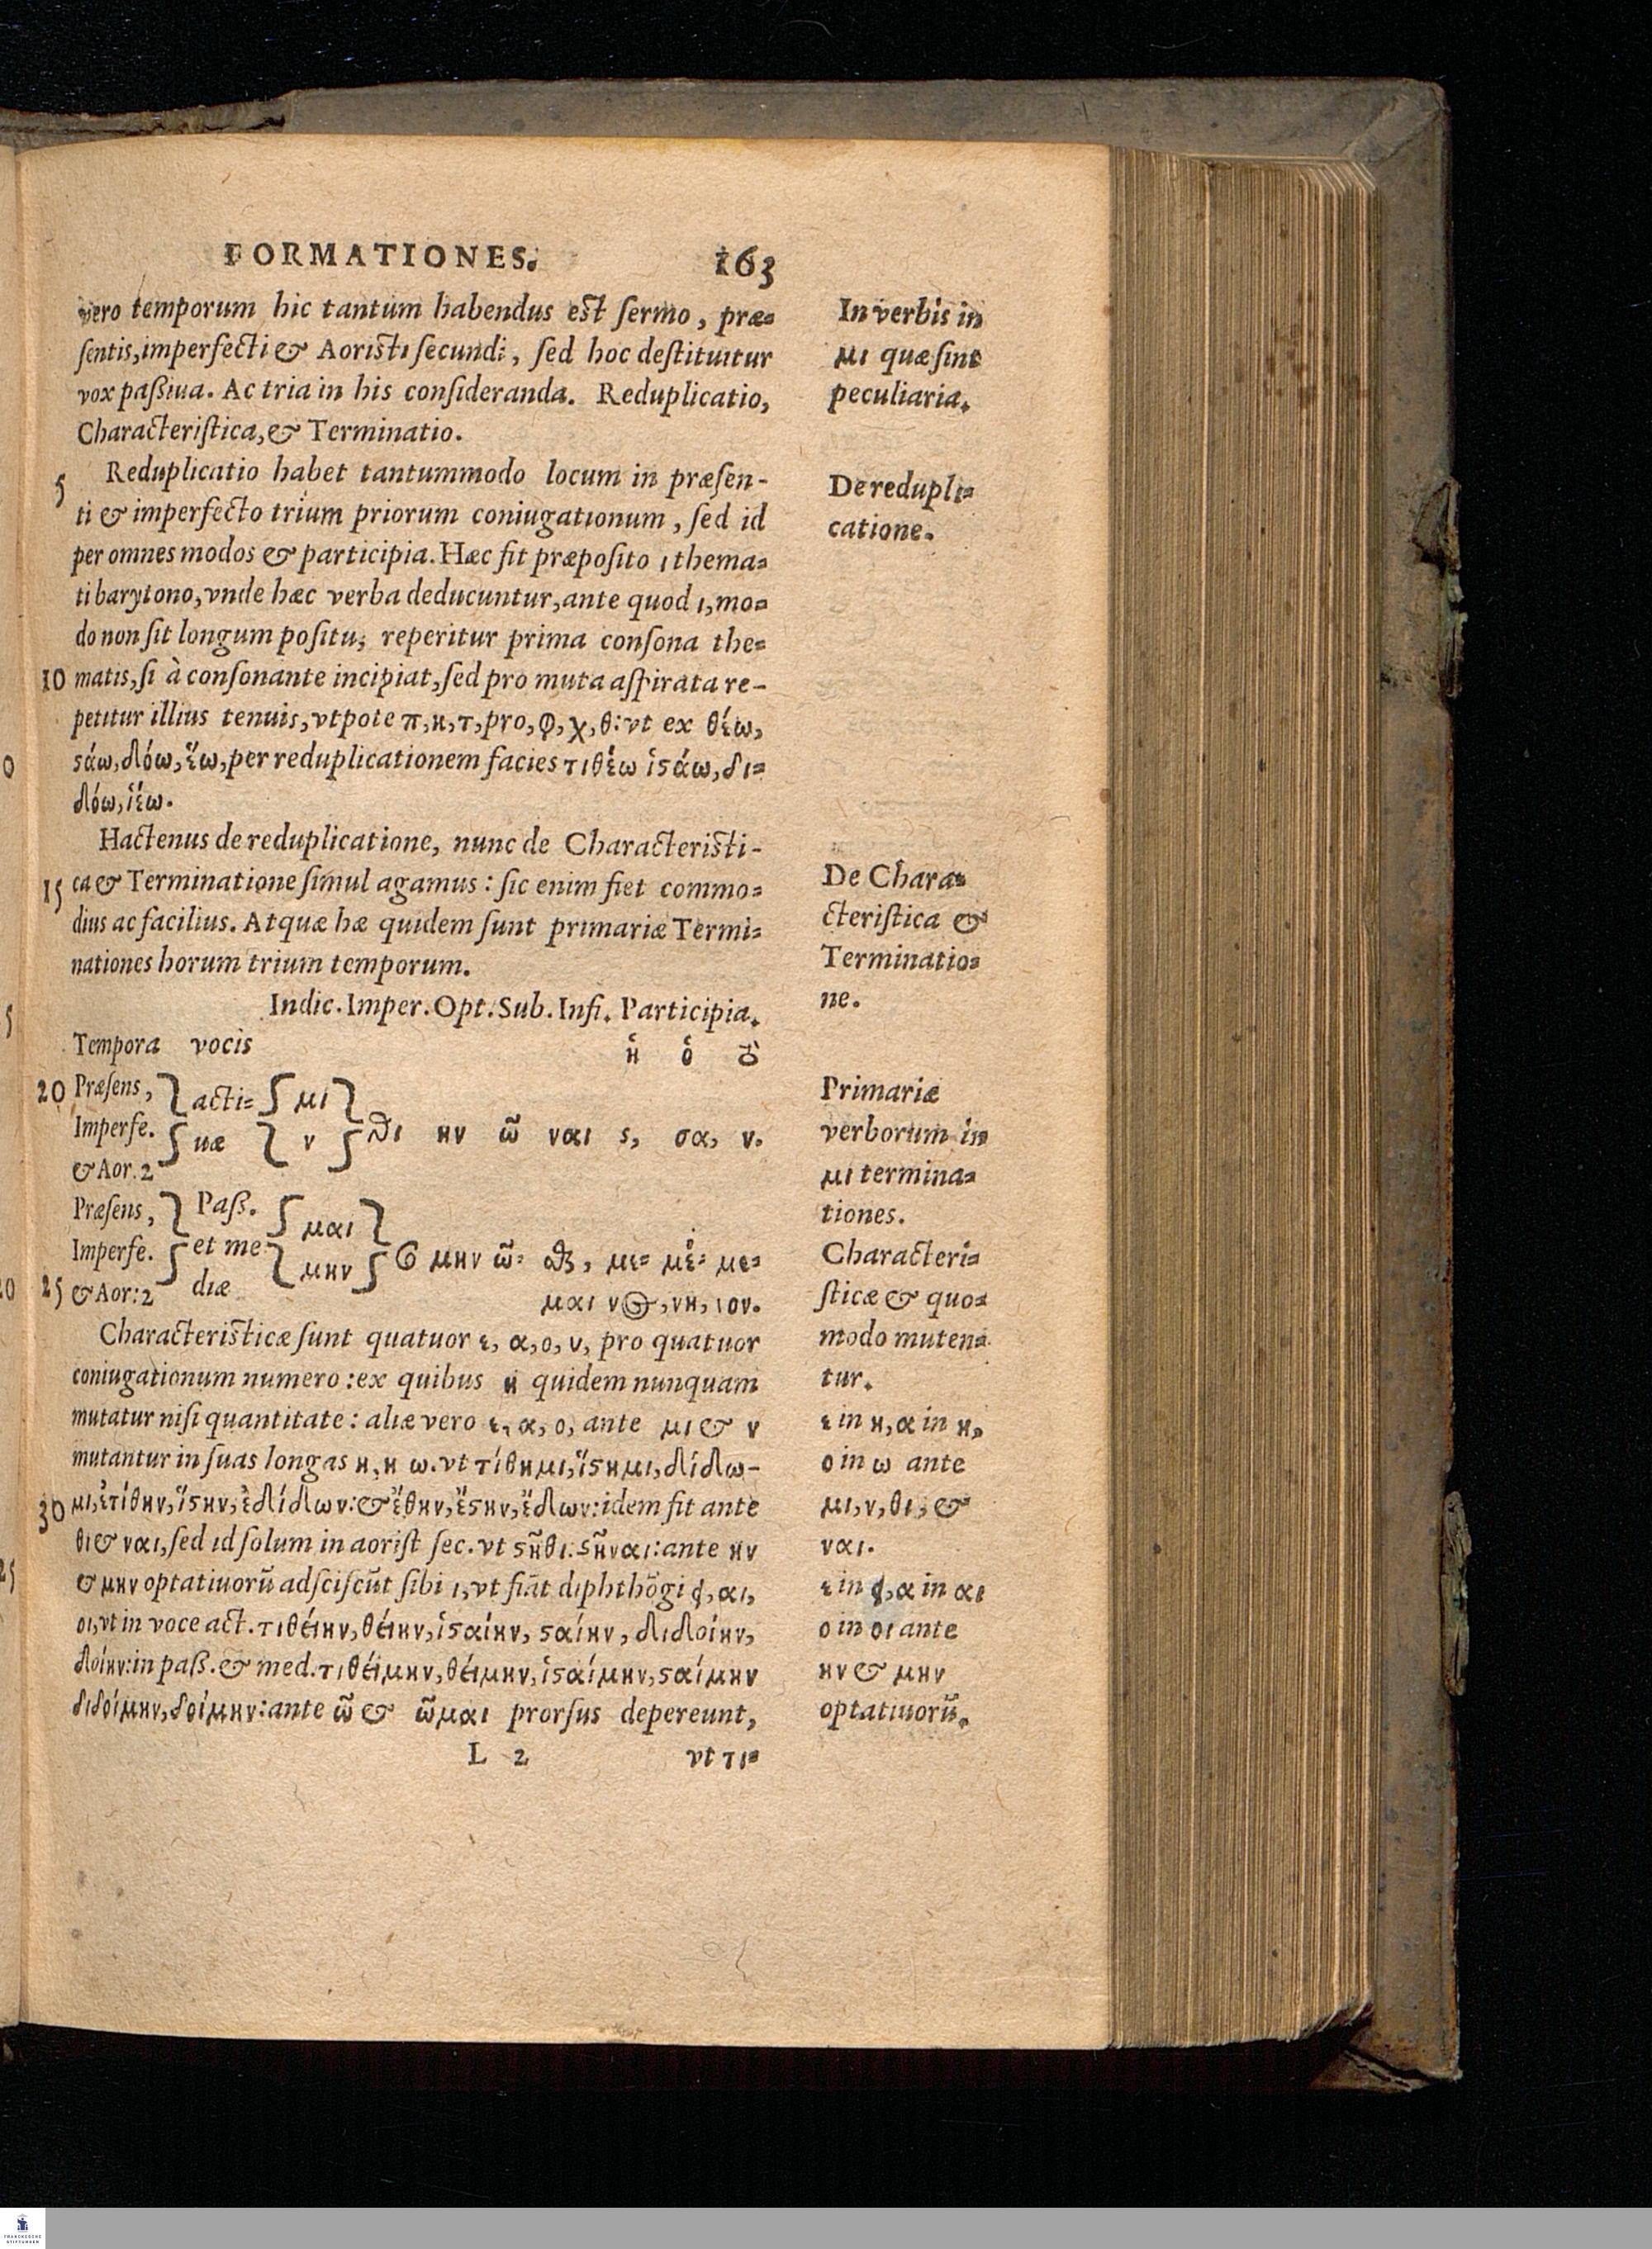 FORMATIONES. 163
vero temporum hic tantum habendus est sermo, præ=
sentis, imperfecti & Aoristi secundi, sed hoc destituitur
vox paßiua. Ac tria in his consideranda. Reduplicatio,
Characteristica, & Terminatio.
In verbis in
μι quæ sint
peculiaria.
5 Reduplicatio habet tantummodo locum in præsen-
ti & imperfecto trium priorum coniugationum, sed id
per omnes modos & participia. Hæc fit præposito ι thema=
ti barytono, vnde hæc verba deducuntur, ante quod ι, mo=
do non sit longum positu, reperitur prima consona the=
10 matis, si à consonante incipiat, sed pro muta aspirata re-
petitur illius tenuis, vtpote π, κ, τ, pro, φ, χ, θ: vt ex θέω,
ϛάω, δόω, ἕω, per reduplicationem facies τιθέω ἱϛάω, δι=
δόω, ἱέω.
De redupli=
catione.
Hactenus de reduplicatione, nunc de Characteristi-
15 ca & Terminatione simul agamus: sic enim fiet commo=
dius ac facilius. Atquæ hæ quidem sunt primariæ Termi=
nationes horum trium temporum.
De Chara=
cteristica &
Terminatio=
ne.
Indic. Imper. Opt. Sub. Infi. Participia.
Tempora vocis ἡ ὁ
20 Præsens, acti= μι
Imperfe. uæ ν θι ην ῶ ναι ς, σα, ν.
& Aor. 2
Præsens, Paß. μαι
Imperfe. et me μην σο μην ῶ= θαι, με= μέ= με=
25 & Aor: 2 diæ
μαι νος, νη, νον.
Primariæ
verborum in
μι termina=
tiones.
Characteri=
sticæ & quo=
modo muten=
tur.
Characteristicæ sunt quatuor ε, α, ο, υ, pro quatuor
coniugationum numero: ex quibus quidem nunquam
mutatur nisi quantitate: aliæ vero ε, α, ο, ante μι & ν
mutantur in suas longas η, η ω. vt τίθημι, ἵϛημι, δίδω-
30 μι, ἐτίθην, ἵϛην, ἐδίδων: & ἔθην, ἔϛην, ἔδων: idem fit ante
θι & ναι, sed id solum in aorist sec. vt ϛῆθι. ϛῆναι: ante ην
& μην optatiuorũ adsciscũt sibi ι, vt fiãt diphthõgi ει, αι,
οι, vt in voce act. τιθείην, θείην, ἱϛαίην, ϛαίην, διδοίην,
δοίην: in paß. & med. τιθείμην, θείμην, ἱϛαίμην, ϛαίμην
διδοίμην, δοίμην: ante ῶ & ῶμαι prorsus depereunt,
ε in η, α in η,
ο in ω ante
μι, ν, θι, &
ναι.
ε in ει, α in αι
ο in οι ante
ην & μην
optatiuorũ.
L 2 vt τι=